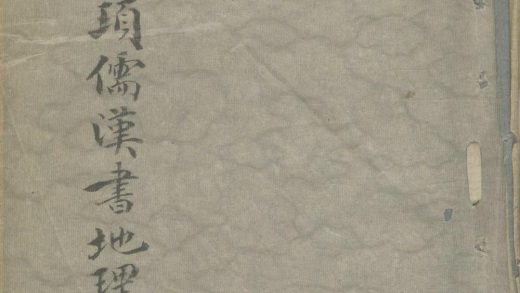 項儒漢書地理